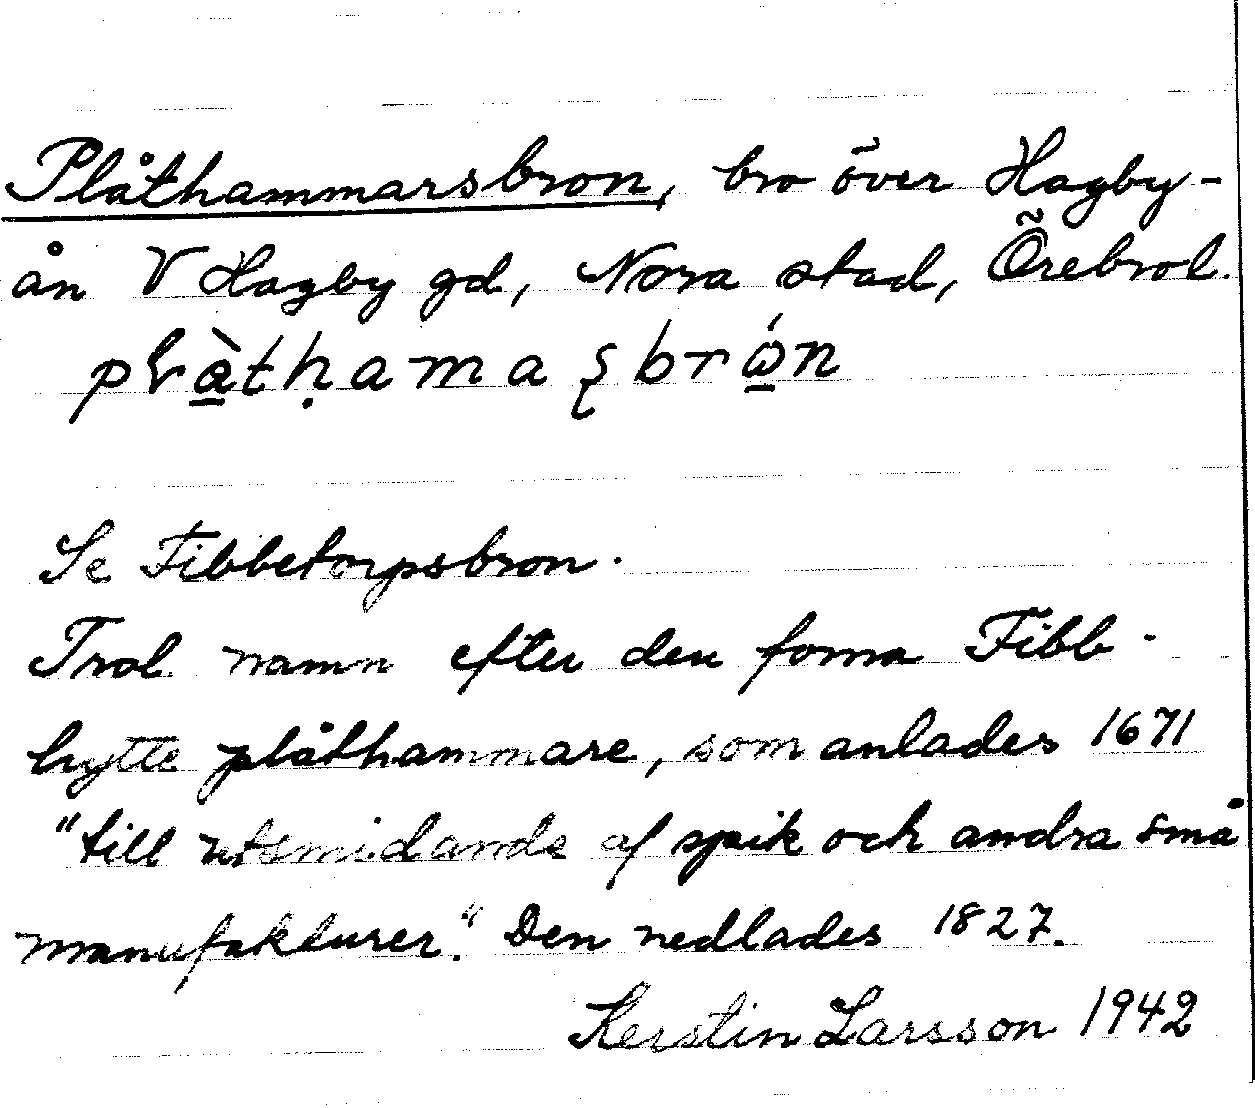 Plåthammarsbron, bro över Hagby-
ån V Hagby gd, Nora stad, Örebrol.
Se Fibbetorpsbron.
Trol namn efter den forna Fibb-
hytte plåthammare, som anlades 1671
"till utsmidande af spik och andra små
manufakturer." Den nedlades 1827.
Kerstin Larsson 1942